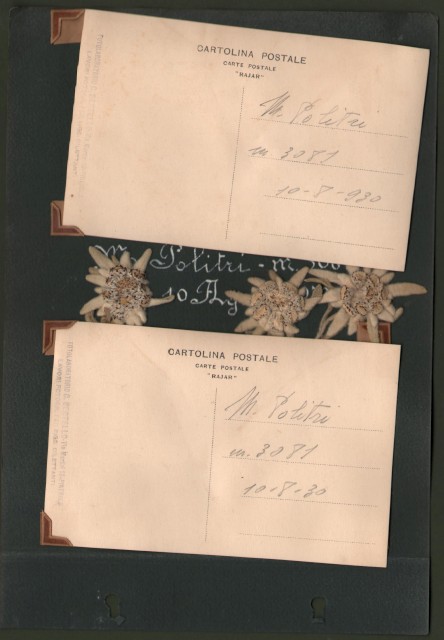 CARTOLINA POSTALE
CARTE POSTALE
"RAJAR"
M. Politri
m. 3081
10-8-930
Politri - m.
10 Ag
CARTOLINA POSTALE
CARTE POSTALE
"RAJAR"
M. Politri
m. 3081
10-8-30